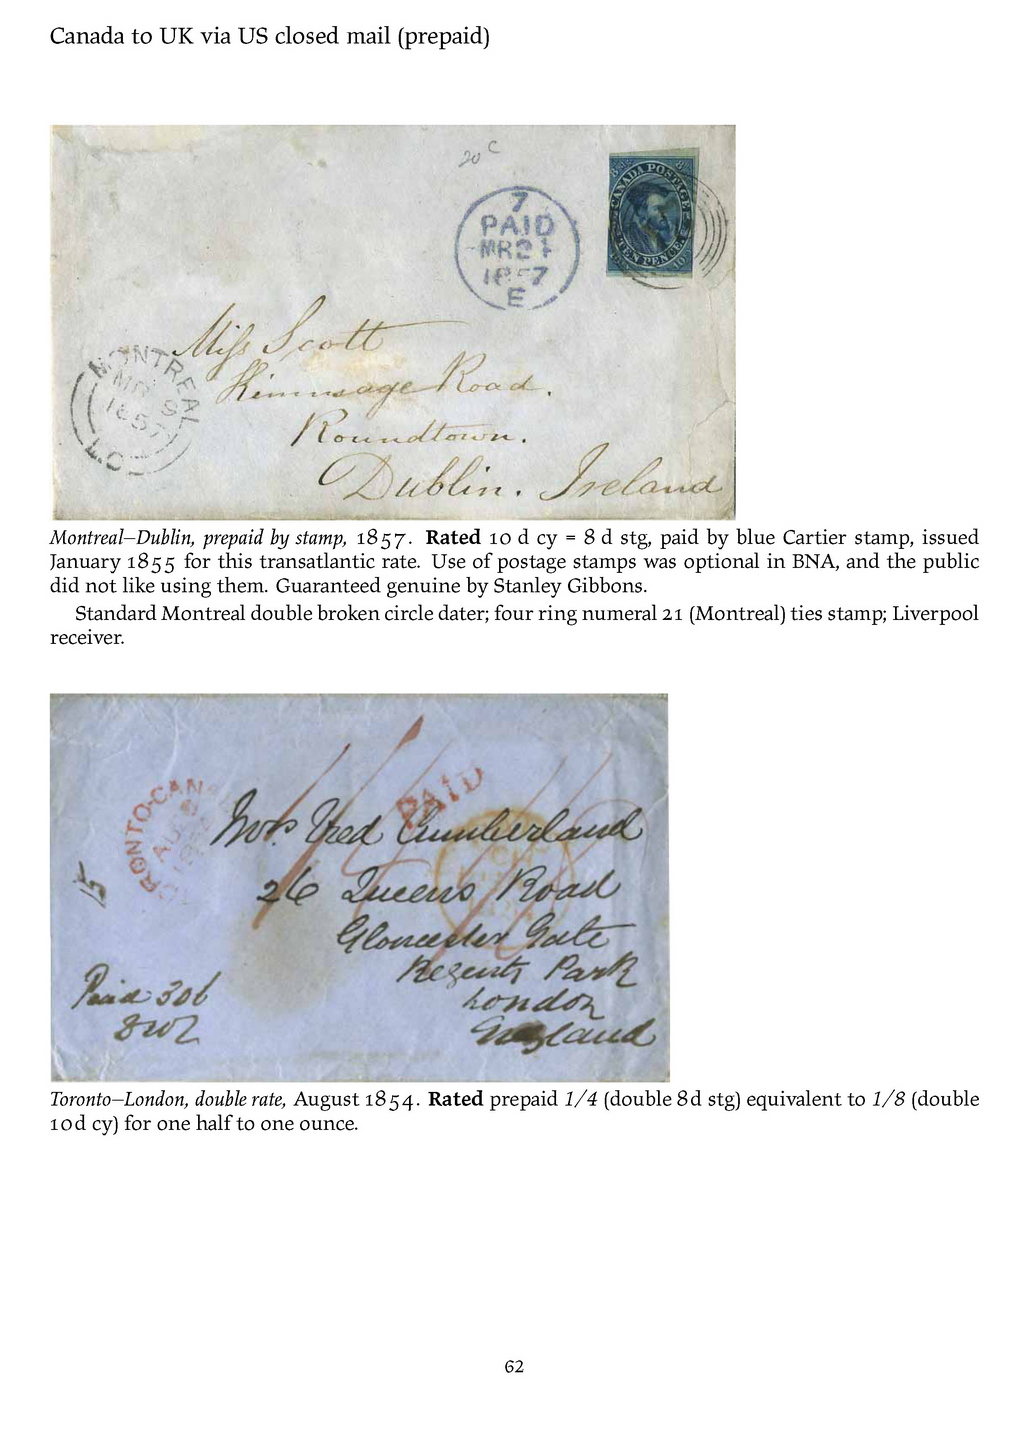 Canada to UK via US closed mail (prepaid)
20 c
7
PAID
MR 21
1857
E
CANADA POSTAGE
TEN PENCE
MONTREAL
MR 9
1857
L.C
Miss Scott
Kimmage Road.
Roundtown.
Dublin. Ireland
Montreal–Dublin, prepaid by stamp, 1857. Rated 10 d cy = 8 d stg, paid by blue Cartier stamp, issued
January 1855 for this transatlantic rate. Use of postage stamps was optional in BNA, and the public
did not like using them. Guaranteed genuine by Stanley Gibbons.
Standard Montreal double broken circle dater; four ring numeral 21 (Montreal) ties stamp; Liverpool
receiver.
PAID
15
Mrs. Fred Cumberland
26 Queens Road
Gloucester Gate
Regents Park
London
England
Toronto–London, double rate, August 1854. Rated prepaid 1/4 (double 8d stg) equivalent to 1/8 (double
10d cy) for one half to one ounce.
62